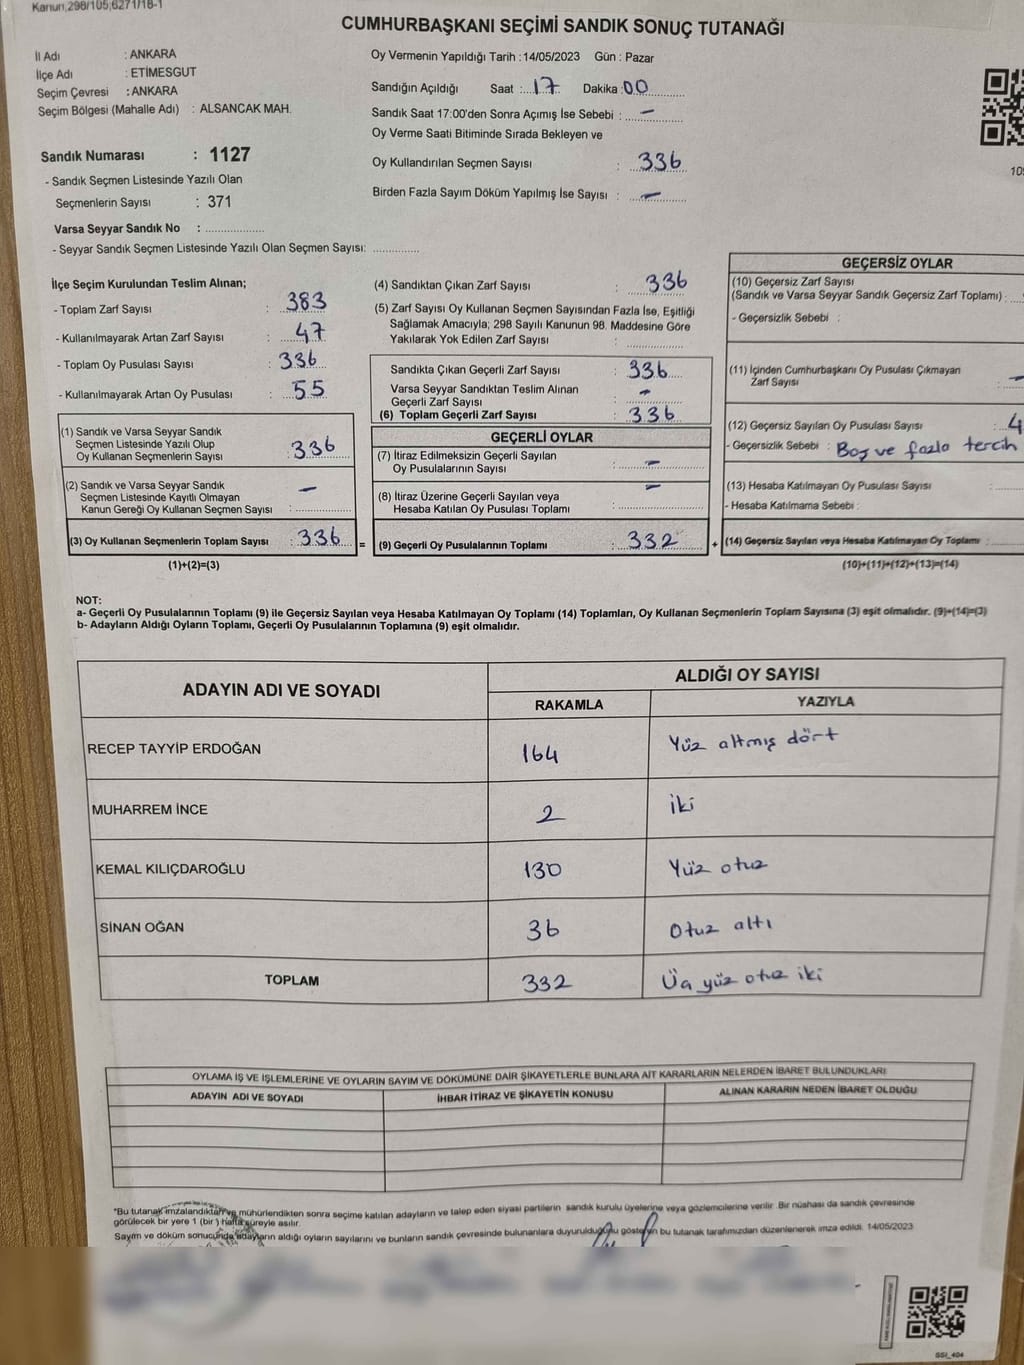 Kanun,298/105,6271/18-1
CUMHURBAŞKANI SEÇİMİ SANDIK SONUÇ TUTANAĞI
İl Adı : ANKARA
İlçe Adı : ETİMESGUT
Seçim Çevresi : ANKARA
Seçim Bölgesi (Mahalle Adı) : ALSANCAK MAH.
Oy Vermenin Yapıldığı Tarih : 14/05/2023 Gün : Pazar
Sandığın Açıldığı Saat : 17 Dakika : 00
Sandık Saat 17:00'den Sonra Açılmış İse Sebebi : —
Oy Verme Saati Bitiminde Sırada Bekleyen ve
Oy Kullandırılan Seçmen Sayısı : 336
Birden Fazla Sayım Döküm Yapılmış İse Sayısı : —
Sandık Numarası : 1127
- Sandık Seçmen Listesinde Yazılı Olan
Seçmenlerin Sayısı : 371
Varsa Seyyar Sandık No : ..................
- Seyyar Sandık Seçmen Listesinde Yazılı Olan Seçmen Sayısı: .............
İlçe Seçim Kurulundan Teslim Alınan;
- Toplam Zarf Sayısı : 383
- Kullanılmayarak Artan Zarf Sayısı : 47
- Toplam Oy Pusulası Sayısı : 336
- Kullanılmayarak Artan Oy Pusulası : 55
(1) Sandık ve Varsa Seyyar Sandık
Seçmen Listesinde Yazılı Olup
Oy Kullanan Seçmenlerin Sayısı : 336
(2) Sandık ve Varsa Seyyar Sandık
Seçmen Listesinde Kayıtlı Olmayan
Kanun Gereği Oy Kullanan Seçmen Sayısı : —
(3) Oy Kullanan Seçmenlerin Toplam Sayısı : 336 =
(1)+(2)=(3)
(4) Sandıktan Çıkan Zarf Sayısı : 336
(5) Zarf Sayısı Oy Kullanan Seçmen Sayısından Fazla İse, Eşitliği
Sağlamak Amacıyla; 298 Sayılı Kanunun 98. Maddesine Göre
Yakılarak Yok Edilen Zarf Sayısı : ..................
Sandıkta Çıkan Geçerli Zarf Sayısı : 336
Varsa Seyyar Sandıktan Teslim Alınan
Geçerli Zarf Sayısı : —
(6) Toplam Geçerli Zarf Sayısı : 336
GEÇERLİ OYLAR
(7) İtiraz Edilmeksizin Geçerli Sayılan
Oy Pusulalarının Sayısı : —
(8) İtiraz Üzerine Geçerli Sayılan veya
Hesaba Katılan Oy Pusulası Toplamı : —
(9) Geçerli Oy Pusulalarının Toplamı : 332 +
GEÇERSİZ OYLAR
(10) Geçersiz Zarf Sayısı
(Sandık ve Varsa Seyyar Sandık Geçersiz Zarf Toplamı) :
- Geçersizlik Sebebi :
(11) İçinden Cumhurbaşkanı Oy Pusulası Çıkmayan
Zarf Sayısı : —
(12) Geçersiz Sayılan Oy Pusulası Sayısı : 4
- Geçersizlik Sebebi : Boş ve fazla tercih
(13) Hesaba Katılmayan Oy Pusulası Sayısı :
- Hesaba Katılmama Sebebi :
(14) Geçersiz Sayılan veya Hesaba Katılmayan Oy Toplamı :
(10)+(11)+(12)+(13)=(14)
NOT:
a- Geçerli Oy Pusulalarının Toplamı (9) ile Geçersiz Sayılan veya Hesaba Katılmayan Oy Toplamı (14) Toplamları, Oy Kullanan Seçmenlerin Toplam Sayısına (3) eşit olmalıdır. (9)+(14)=(3)
b- Adayların Aldığı Oyların Toplamı, Geçerli Oy Pusulalarının Toplamına (9) eşit olmalıdır.
ADAYIN ADI VE SOYADI ALDIĞI OY SAYISI
RAKAMLA YAZIYLA
RECEP TAYYİP ERDOĞAN 164 Yüz altmış dört
MUHARREM İNCE 2 iki
KEMAL KILIÇDAROĞLU 130 Yüz otuz
SİNAN OĞAN 36 Otuz altı
TOPLAM 332 Üç yüz otuz iki
OYLAMA İŞ VE İŞLEMLERİNE VE OYLARIN SAYIM VE DÖKÜMÜNE DAİR ŞİKAYETLERLE BUNLARA AİT KARARLARIN NELERDEN İBARET BULUNDUKLARI
ADAYIN ADI VE SOYADI İHBAR İTİRAZ VE ŞİKAYETİN KONUSU ALINAN KARARIN NEDEN İBARET OLDUĞU
*Bu tutanak imzalandıktan ve mühürlendikten sonra seçime katılan adayların ve talep eden siyasi partilerin sandık kurulu üyelerine veya gözlemcilerine verilir. Bir nüshası da sandık çevresinde
görülecek bir yere 1 (bir) hafta süreyle asılır.
Sayım ve döküm sonucunda adayların aldığı oyların sayılarını ve bunların sandık çevresinde bulunanlara duyurulduğunu gösteren bu tutanak tarafımızdan düzenlenerek imza edildi. 14/05/2023
GSI_404